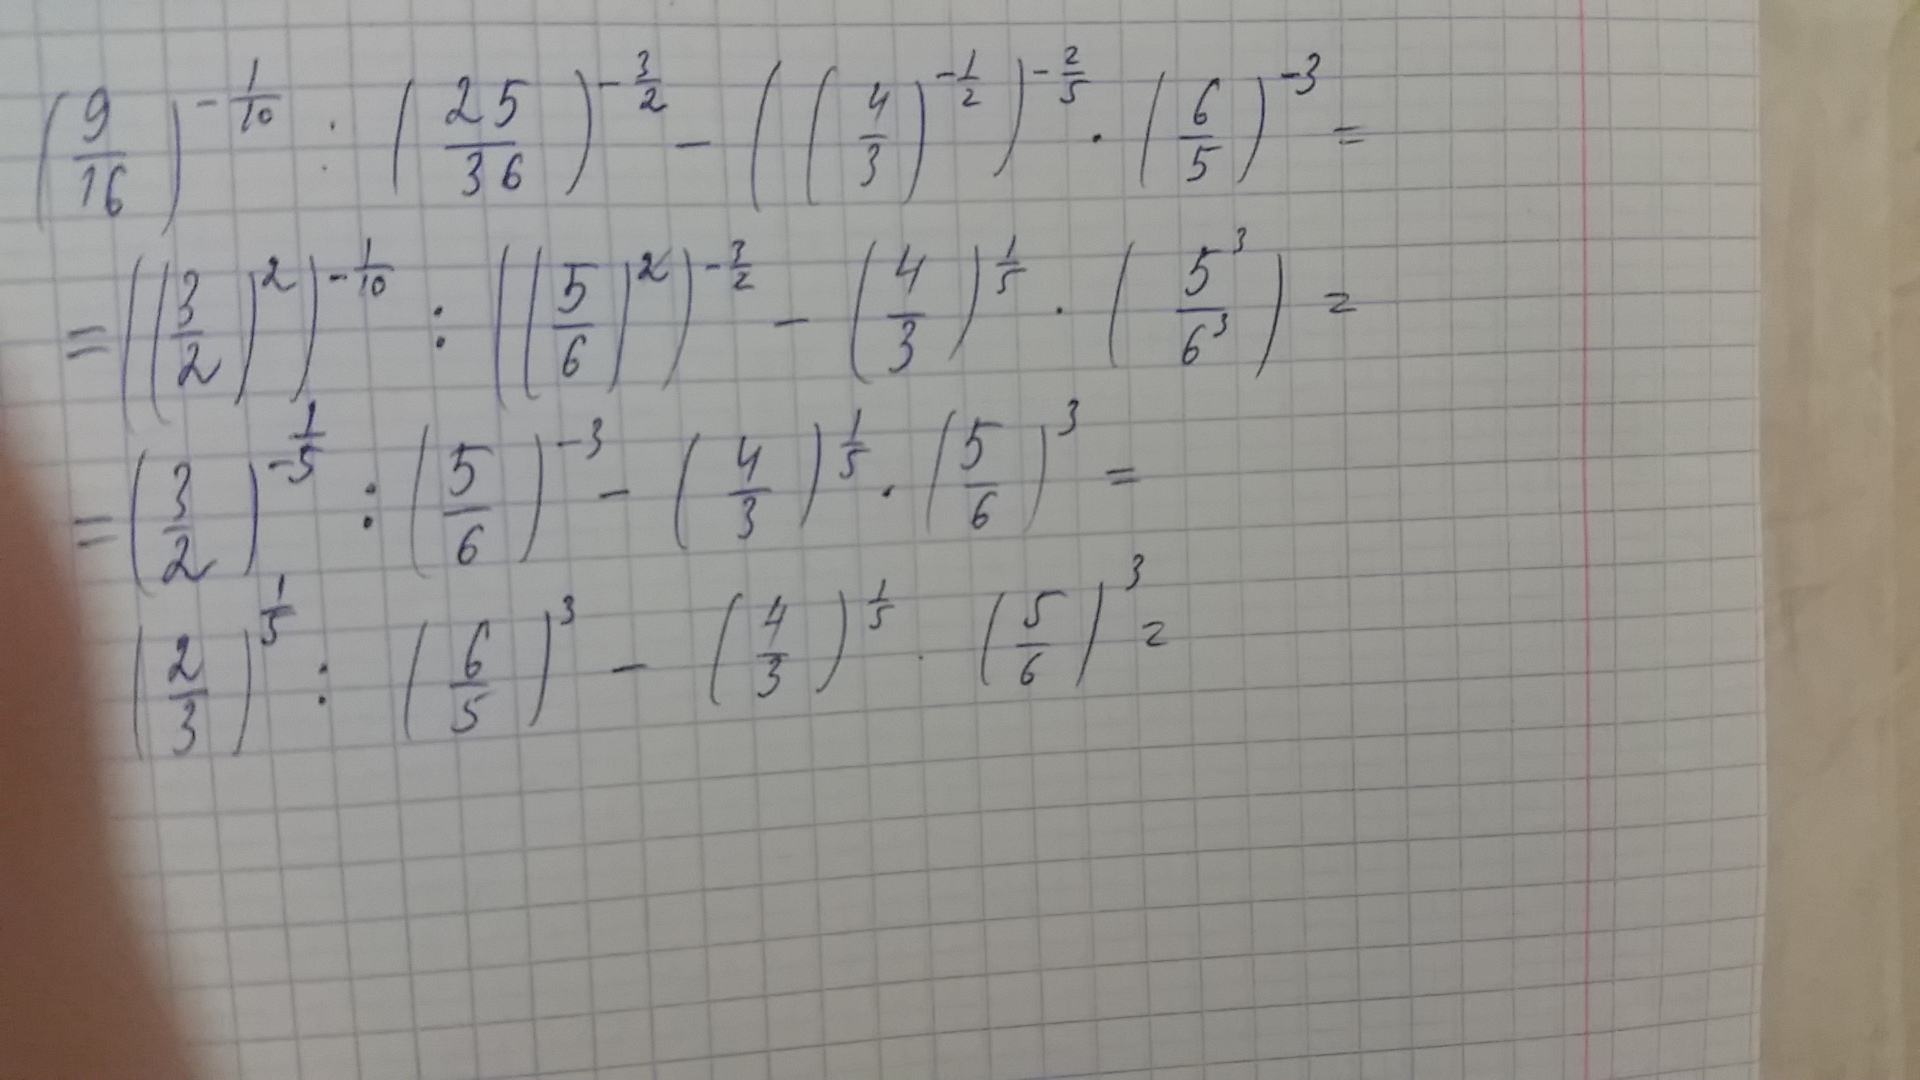 (9/16)^(-1/10) : (25/36)^(-3/2) - ((4/3)^(-1/2))^(-2/5) · (6/5)^(-3) =
= ((3/2)^2)^(-1/10) : ((5/6)^2)^(-3/2) - (4/3)^(1/5) · (5^3/6^3) =
= (3/2)^(-1/5) : (5/6)^(-3) - (4/3)^(1/5) · (5/6)^3 =
(2/3)^(1/5) : (6/5)^3 - (4/3)^(1/5) · (5/6)^3 =